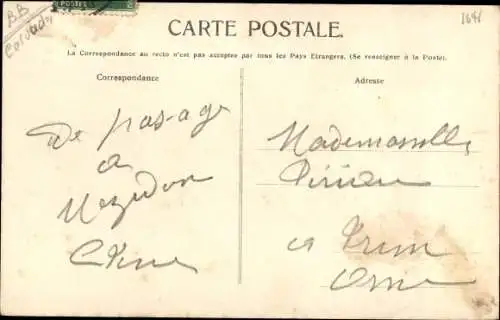 BB
Calvados
1648
POSTES
CARTE POSTALE.
La Correspondance au recto n'est pas acceptée par tous les Pays Etrangers. (Se renseigner à la Poste).
Correspondance
Adresse
De passage
a
Mezidon
Mademoiselle
a
Orne